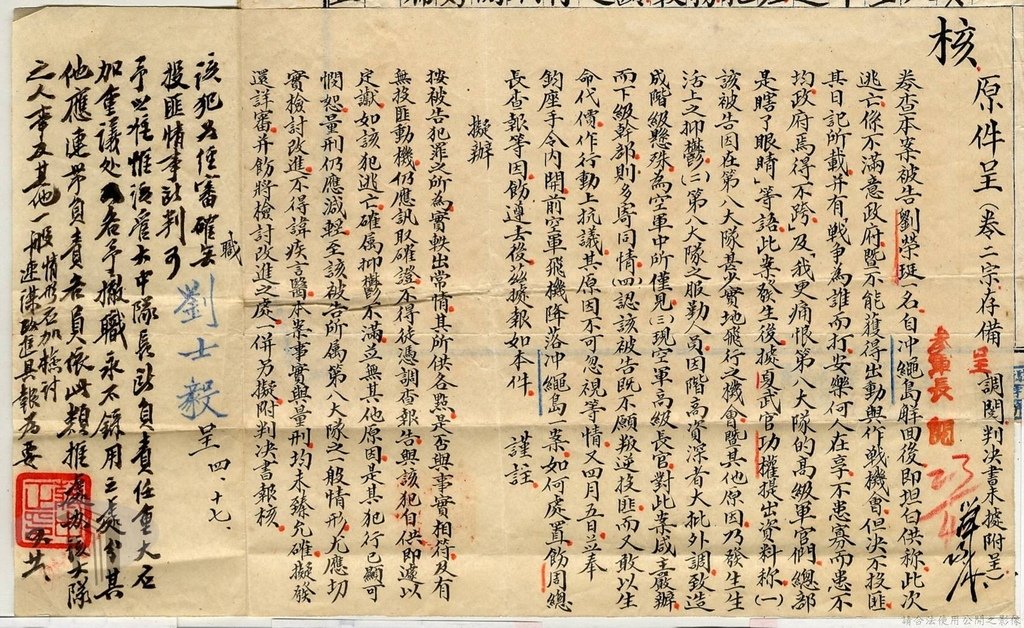 核
原件呈(卷二宗存備
呈
調閱判決書未據附呈)
參軍長
劵查本案被告劉榮珽一名自沖繩島觧囬後即坦白供稱此次
逃亡係不滿意政府暨不能獲得出動與作戰機會但決不投匪
其日記所載并有「戰爭為誰而打安樂何人在享不患寡而患不
均政府焉得不跨」及「我更痛恨第八大隊的髙級軍官們總部
是瞎了眼睛」等語此案發生後據身武官功權提出資料稱(一)
該被告因在第八大隊甚少實地飛行之機會暨其他原因乃發生生
活上之抑鬱(二)第八大隊之服勤人員因階高資深者大批外調致造
成階級懸殊為空軍中所僅見(三)現空軍高級長官對此案咸主嚴辦
而下級幹部則多寄同情(四)認該被告既不願叛逆投匪而又敢以生
命代價作行動上抗議其原因不可忽視等情又四月五日並奉
鈞座手令內開前空軍飛機降落沖繩島一案如何處置飭周總
長查報等因飭遵去後茲據報如本件
謹註
擬辦
按被告犯罪之所為實軼出常情其所供各點是否與事實相符及有
無投匪動機仍應訊取確證不得徒憑調查報告與該犯自供即遽以
定讞如該犯逃亡確属抑鬱不滿立無其他原因是其犯行已顯可
憫恕量刑仍應減輕至該被告所属第八大隊之一般情形尤應切
實檢討改進不得諱疾言醫本案事實與量刑均未臻允確擬發
還詳審并飭將檢討改進之處一併另擬附判決書報核
職
劉士毅
呈 四、十七、
該犯如經審確無
投匪情事該判可
予以准惟該管大中隊長及負責任重大不
加重議處名予撤職永不錄用之處分其
他應連帶負責者員依此類推處分該大隊
之人事及其他一般情形着加檢討
速謀改進具報為要